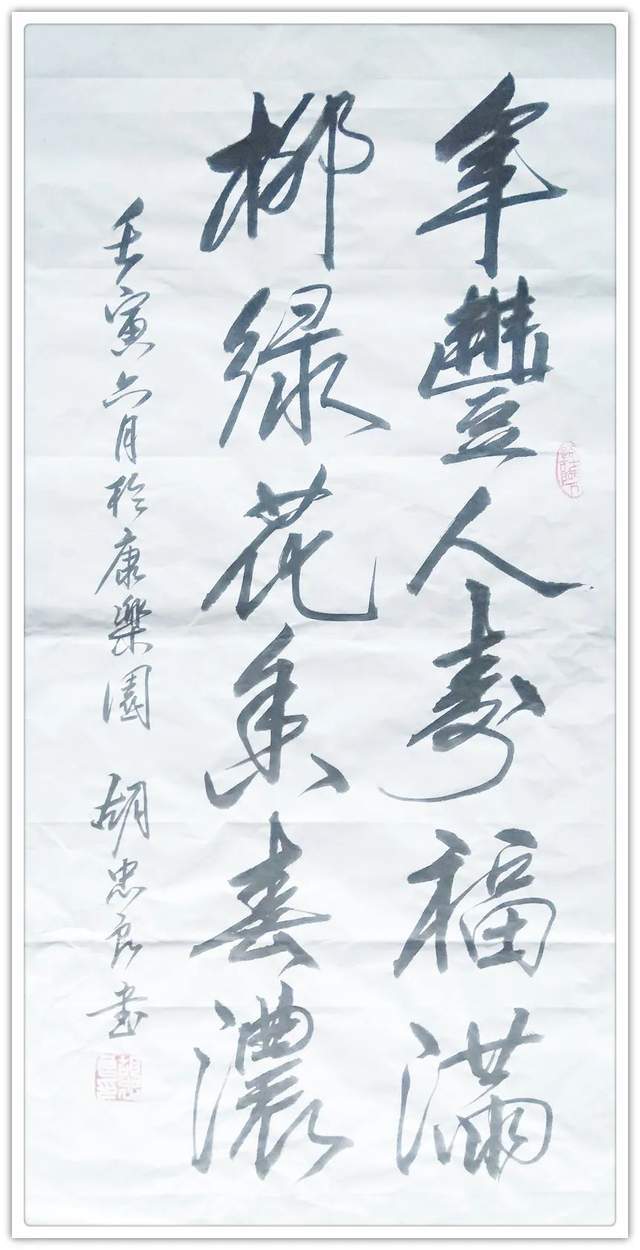 年豐人壽福滿
柳緑花香春濃
壬寅六月於康樂園 胡忠良書